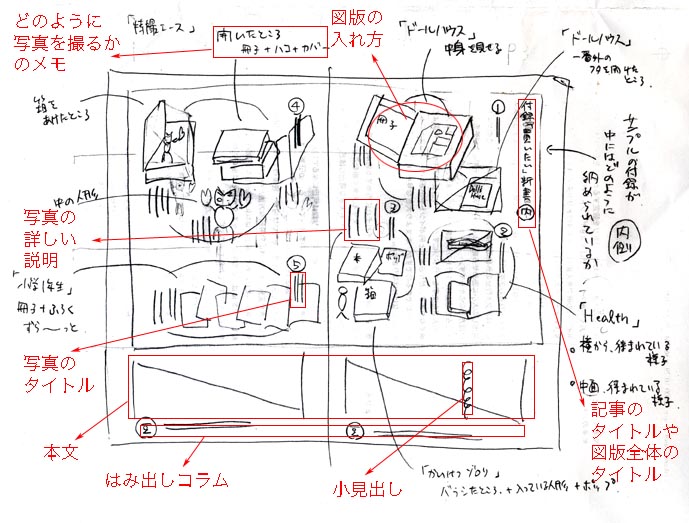 どのように
写真を撮るか
のメモ
「特撮エース」
開いたところ
冊子+ハコ+カバー
図版の
入れ方
「ドールハウス」
中身を見せる
「ドールハウス」
一番外の
フタを開けた
ところ
箱を
あけたところ
④
冊子
①
付録で買いたい」新書 内
サンプルの付録が
中にはどのように
納められているか
内側
中の人形
Dolls
House
写真の
詳しい
説明
③
②
⑤
本
ポップ
箱
「小学1年生」
冊子+ふろく
ずら〜っと
「Health」
横から、挟まれている
様子
中面、挟まれている
様子
写真の
タイトル
本文
はみ出しコラム
小見出し
記事の
タイトルや
図版全体の
タイトル
「かいけつゾロリ」
バラシたところ.+入っている人形+ポップ